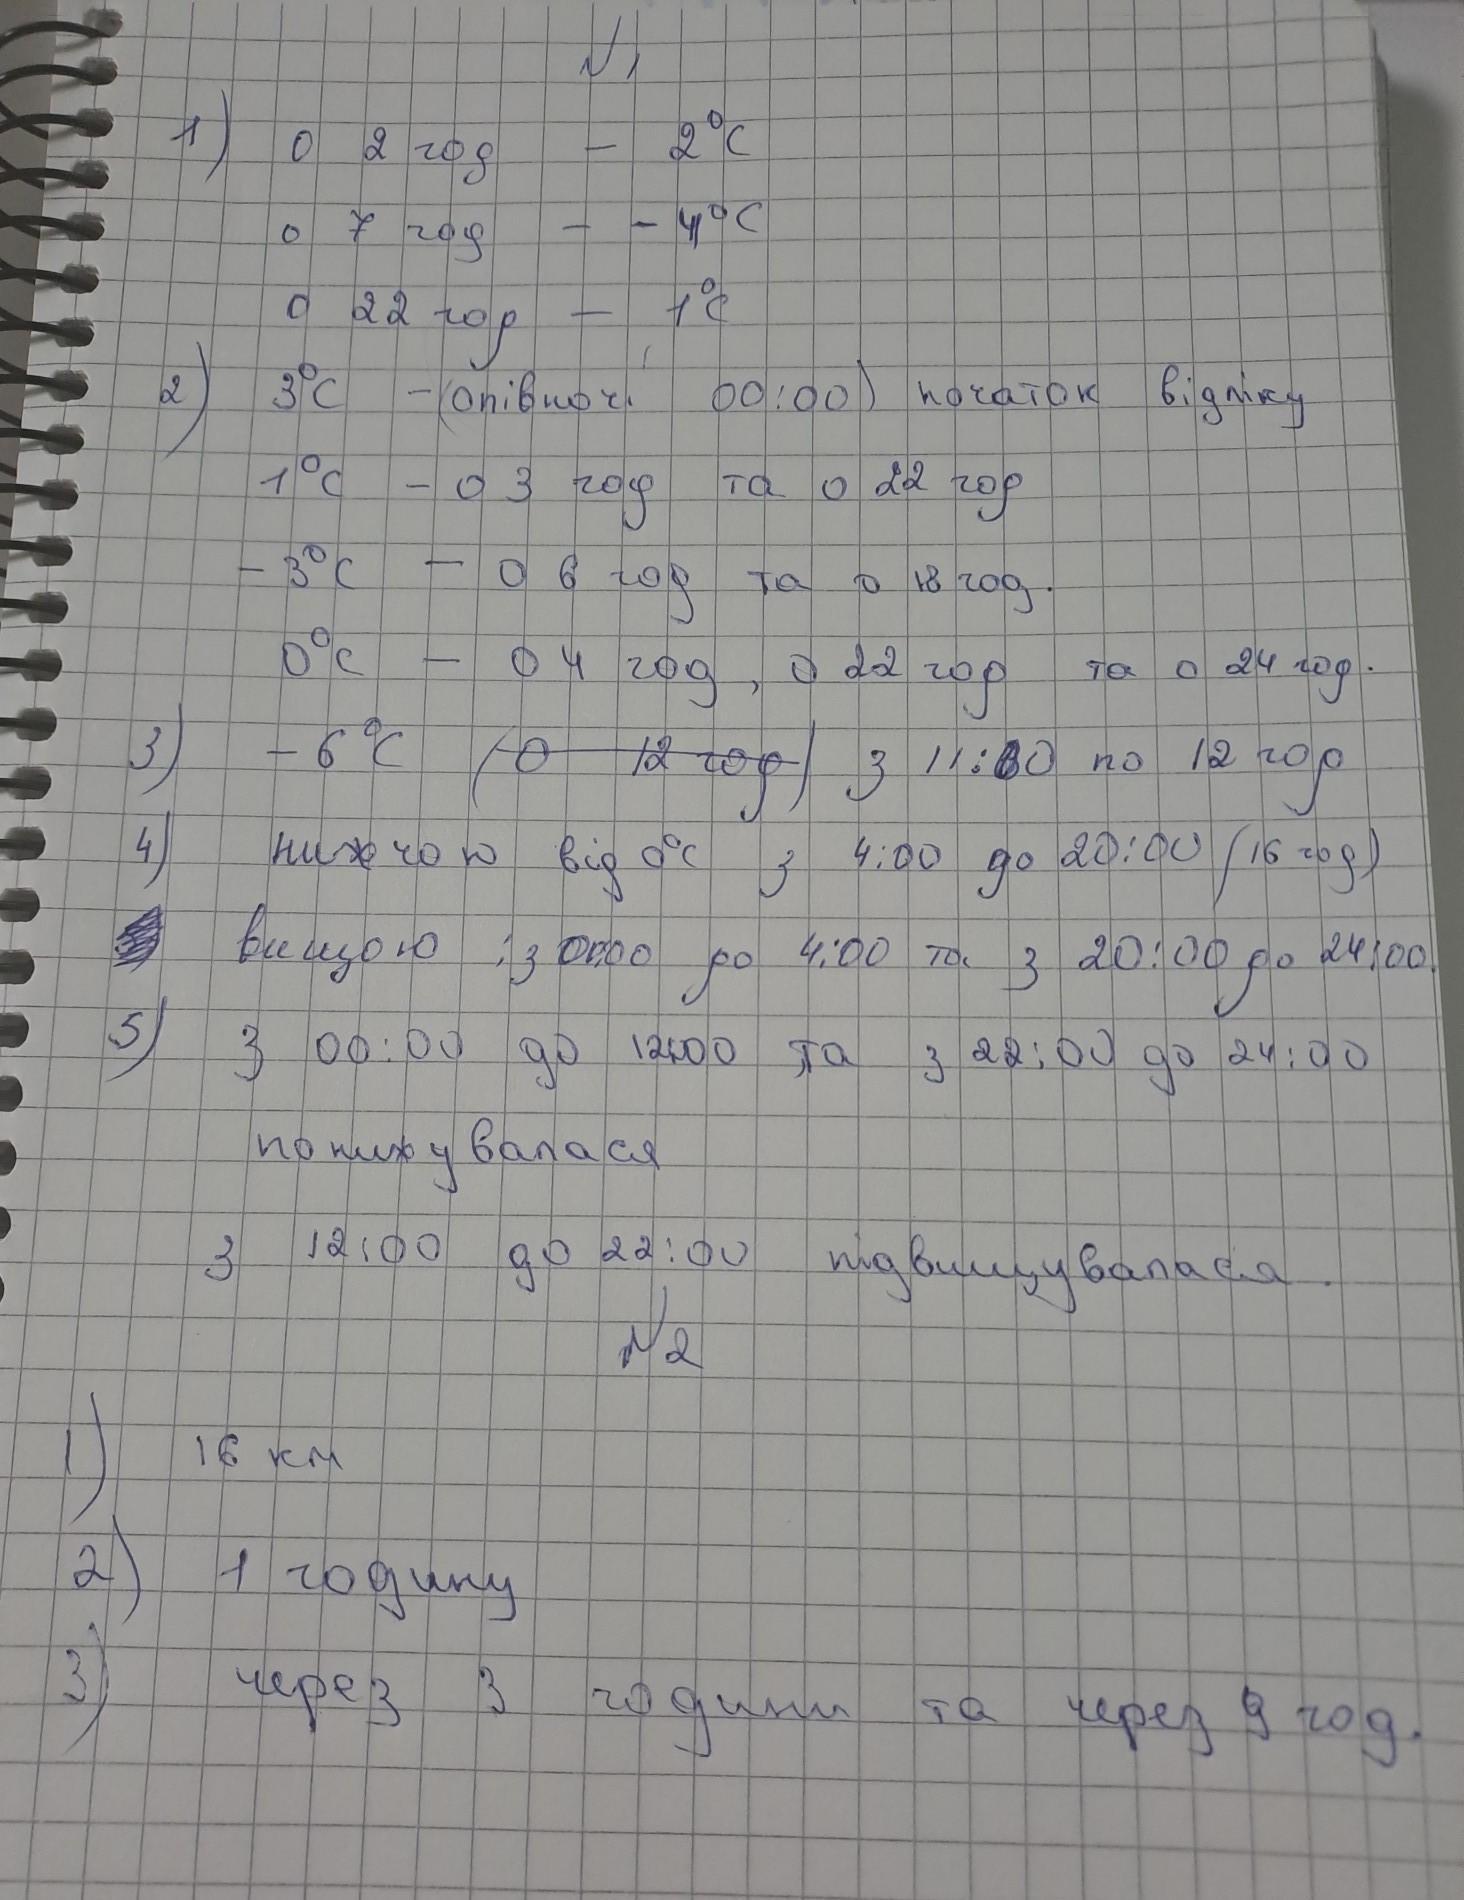 №1
1) о 2 год – 2°C
о 7 год – -4°C
о 22 год – 1°C
2) 3°C – (опівночі 00:00) початок відліку
1°C – о 3 год та о 22 год
-3°C – о 6 год та о 18 год.
0°C – о 4 год, о 22 год та о 24 год.
3) -6°C (о 12 год) з 11:00 по 12 год
4) нижчою від 0°C з 4:00 до 20:00 (16 год)
вищою : з 00:00 до 4:00 та з 20:00 до 24:00
5) з 00:00 до 12:00 та з 22:00 до 24:00
понижувалася
з 12:00 до 22:00 підвищувалася.
№2
1) 16 км
2) 1 годину
3) через 3 години та через 9 год.